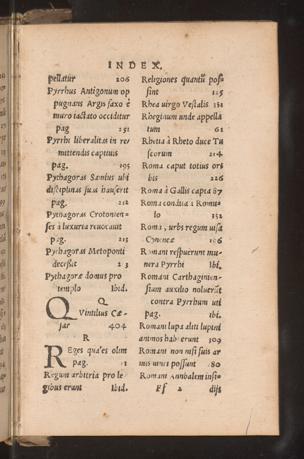 INDEX.
pellatur 206
Pyrrhus Antigonum op
pugnans Argis saxo è
muro iactato occiditur
pag 251
Pyrrhi liberalitas in re
mittendis captiuis
pag. 195
Pythagoras Samius ubi
disciplinas suas hauserit
pag. 212
Pythagoras Crotonien-
ses à luxuria reuocauit
pag. 213
Pythagoras Metaponti
decessit 213
Pythagoræ domus pro
templo Ibid.
Q
QVintilius Cæ-
sar 404
R
REges quales olim
pag. 1
Regum arbitria pro le
gibus erant Ibid.
Religiones quantū pos-
sint 115
Rhea uirgo Vestalis 382
Rheginum unde appella
tum 61
Rhetia à Rheto duce Tu
scorum 214
Roma caput totius or
bis 226
Roma à Gallis capta 87
Roma condita à Romu-
lo 352
Roma, urbs regum uisa
Cyneæ 206
Romani respuerunt mu-
nera Pyrrhi Ibi.
Romani Carthaginien-
sium auxilio noluerūt
contra Pyrrhum uti
pag. ibi.
Romani lupæ aliti lupini
animos habuerunt 309
Romani non nisi suis ar
mis uinci possunt 80
Romani Annibalem insi-
Ff 2 dijs